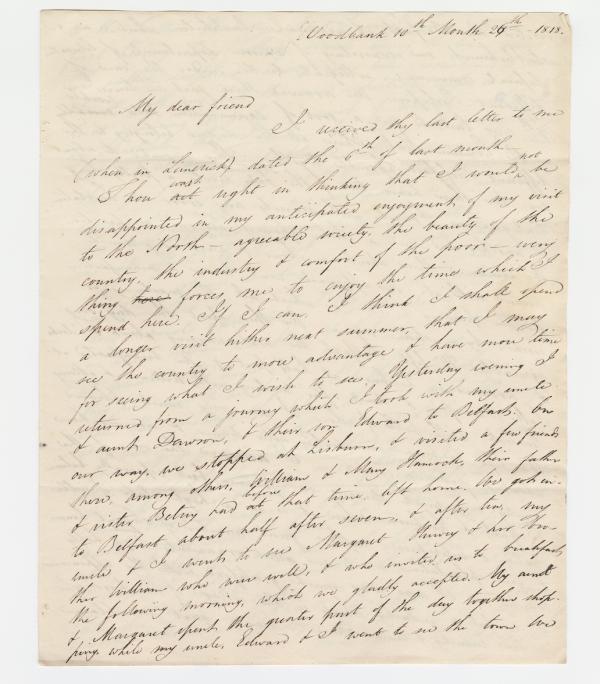 Woodbank 10th Month 24th 1818.
My dear friend
I received thy last letter to me
(when in Limerick) dated the 6th of last month
Thou wast right in thinking that I would not be
disappointed in my anticipated enjoyment, of my visit
to the North - agreeable society, the beauty of the
country, the industry & comfort of the poor - every
thing here forces me to enjoy the time which I
spend here. If I can, I think I shall spend
a longer visit hither next summer, that I may
see the country to more advantage & have more time
for seeing what I wish to see. Yesterday evening I
returned from a journey which I took with my uncle
& aunt Dawson, & their son Edward to Belfast. On
our way, we stopped at Lisburn, & visited a few friends
there, among others, William & Mary Hancock, their father
& sister Betsy had before that time left home. We got on
to Belfast about half after seven, & after tea, my
uncle & I went to see Margaret & her bro-
ther William who were well, & who invited us to breakfast
the following morning, which we gladly accepted. My aunt
& Margaret spent the greater part of the day together shop-
ping while my uncle, Edward & I went to see the town We